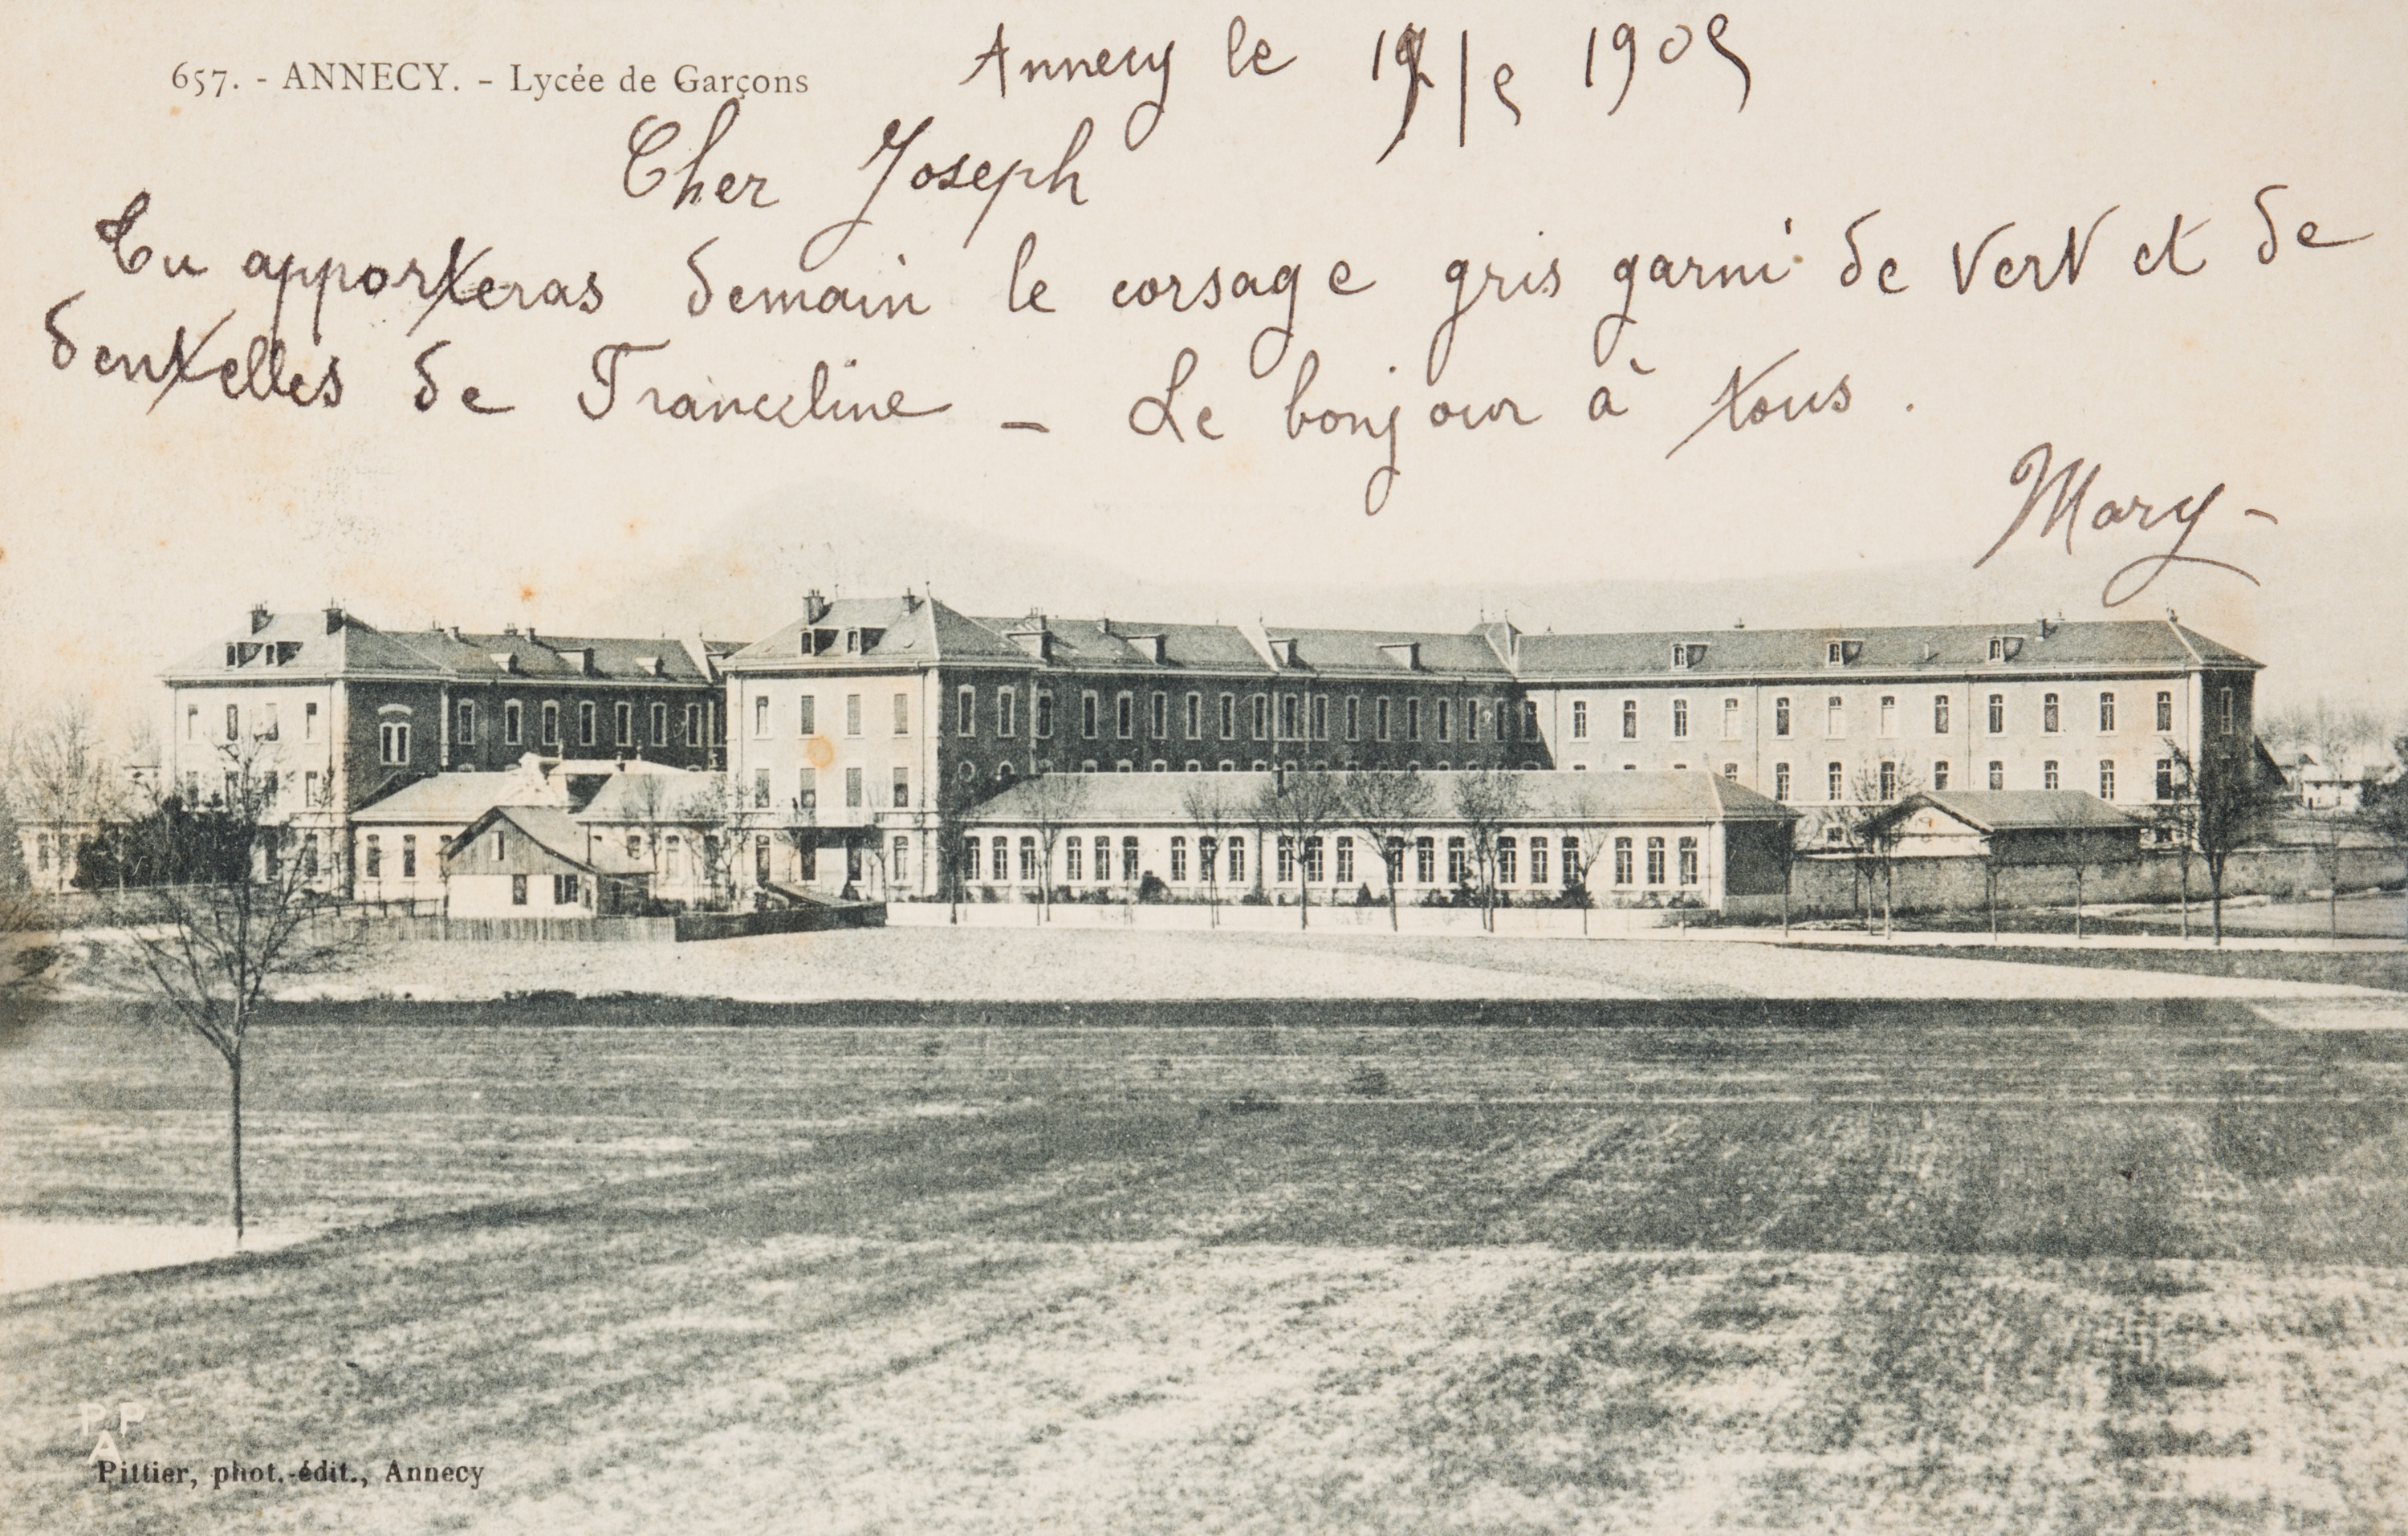 657. - ANNECY. - Lycée de Garçons
Annecy le 1905
Cher Joseph
Tu apporteras demain le corsage gris garni de vert et de
dentelles de Franceline - Le bonjour à tous.
Mary -
PPA
Pittier, phot.-édit., Annecy